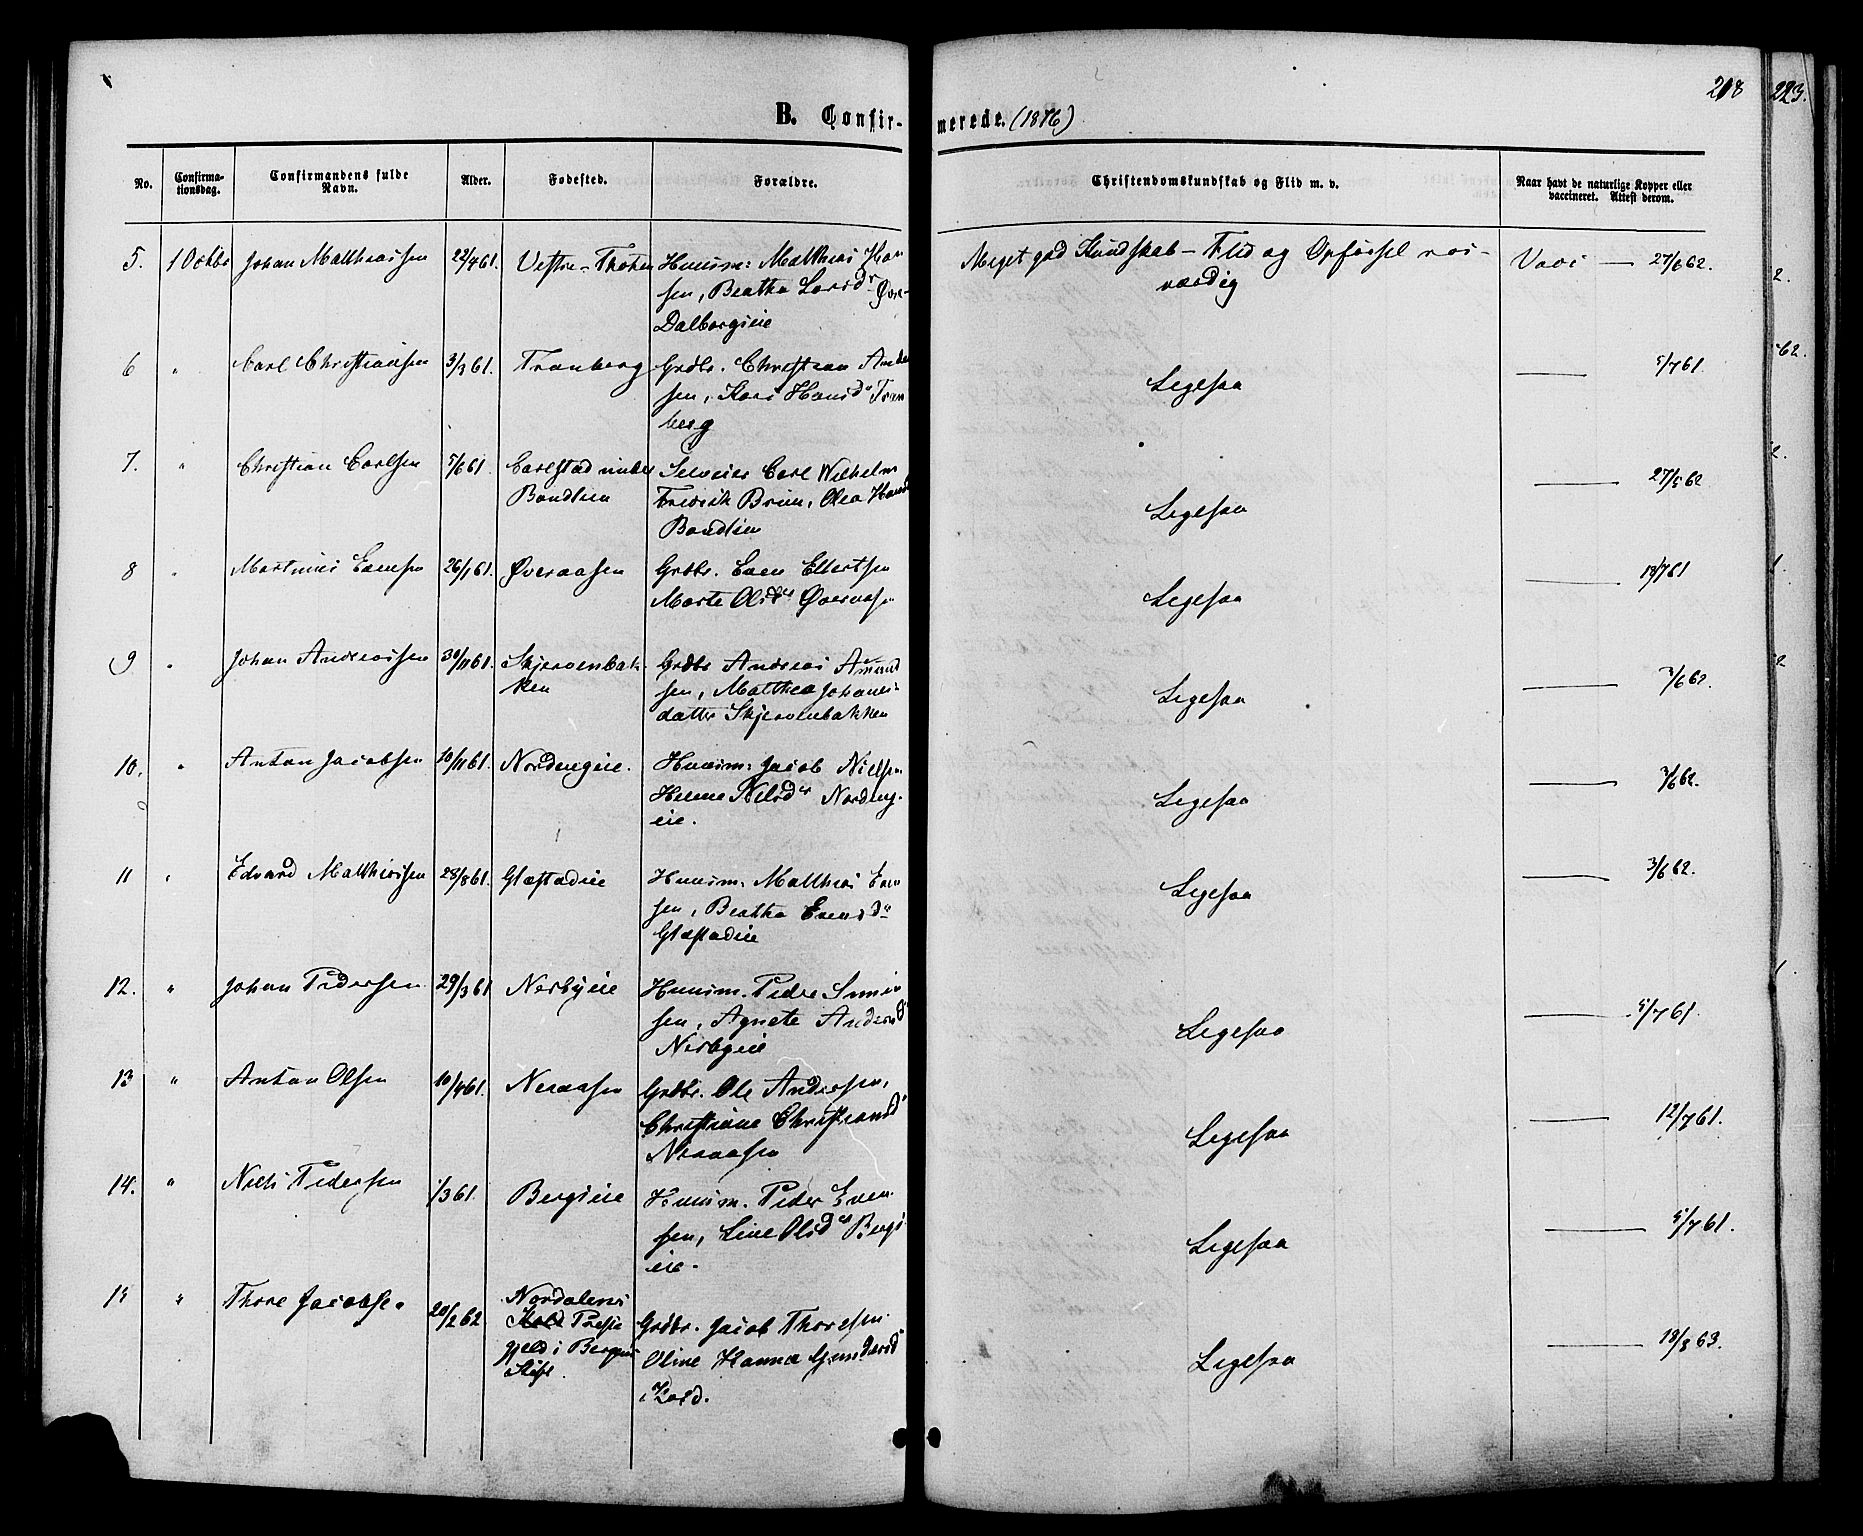 218
223.
B. Confirmerede. (1876)
No.
Confirmationsdag.
Confirmandens fulde Navn.
Alder.
Fødested.
Forældre.
Christendomskundskab og Flid m. v.
Naar havt de naturlige Kopper eller vaccineret. Attest derom.
5. 1 Octbr Johan Matthiassen 22/4 61. Vestre-Thoten Huusm: Matthias Han-
sen, Beathe Larsdr Øvre-
Dalborgeie
Meget god Kundskab - Flid og Opførsel ros-
værdig
Vacc — 27/6 62.
6 " Carl Christiansen 3/3 61. Tranberg Grdbr. Christian Ander
sen, Kari Hansdr Tran
berg
Ligesaa — 5/7 61.
7. " Christian Carlsen 5/6 61. Carlstad under
Baadlien
Selveier Carl Wilhelm
Fredrik Bruun, Olea Hansd
Baadlien
Ligesaa — 27/5 62
8 " Martinus Evensen 26/1 61. Øveraasen Grdbr. Even Ellertsen
Marte Olsdr Øveraasen
Ligesaa — 19/7 61
9 " Johan Andreassen 30/11 61. Skjervenbak-
ken
Grdbr Andreas Amund
sen, Matthea Johannes
datter Skjervenbakken
Ligesaa — 3/6 62.
10. " Anton Jacobsen 10/11 61. Nordengeie. Huusm: Jacob Nielsen
Helene Nilsdr Nordeng-
eie.
Ligesaa — 3/6 62.
11 " Edvard Matthiassen 28/8 61. Glæstadeie Huusm. Matthias Even
sen, Beathe Evensdr
Glæstadeie
Ligesaa — 3/6 62.
12. " Johan Pedersen 29/3 61 Nerbyeie Huusm. Peder Simen
sen, Agnete Andersd
Nerbyeie
Ligesaa — 5/7 61.
13 " Anton Olsen 10/4 61. Neraasen Grdbr. Ole Andersen,
Christiane Christiansd
Neraasen
Ligesaa — 12/7 61.
14. " Niels Pedersen 1/3 61. Bergseie Huusm. Peder Even
sen, Line Olsdr Bergs
eie.
Ligesaa — 5/7 61.
15 " Thore Jacobsen 20/2 62. Nordalens
Præste
gjeld i Bergens
Stift.
Grdbr. Jacob Thoresen
Oline Hanna Gundersd
Ligesaa — 18/8 63.